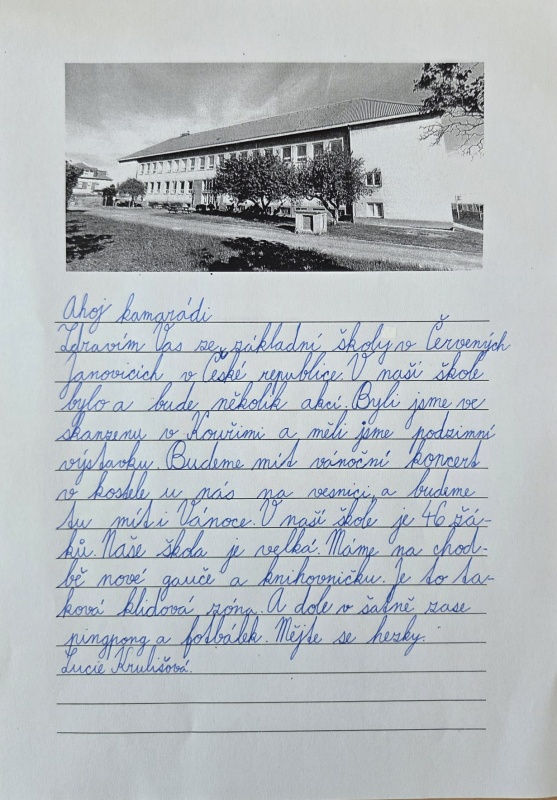 Ahoj kamarádi
Zdravím Vas ze základní školy v Červených
Janovicích v České republice. V naší škole
bylo a bude několik akcí. Byli jsme ve
skanzenu v Kouřimi a měli jsme podzimní
výstavku. Budeme mít vánoční koncert
v kostele u nás na vesnici, a budeme
tu mít i Vánoce. V naší škole je 46 žá-
ků. Naše škola je velká. Máme na chod-
bě nové gauče a knihovničku. Je to ta-
ková klidová zóna. A dole v šatně zase
pingpong a fotbálek. Mějte se hezky.
Lucie Krulišová.